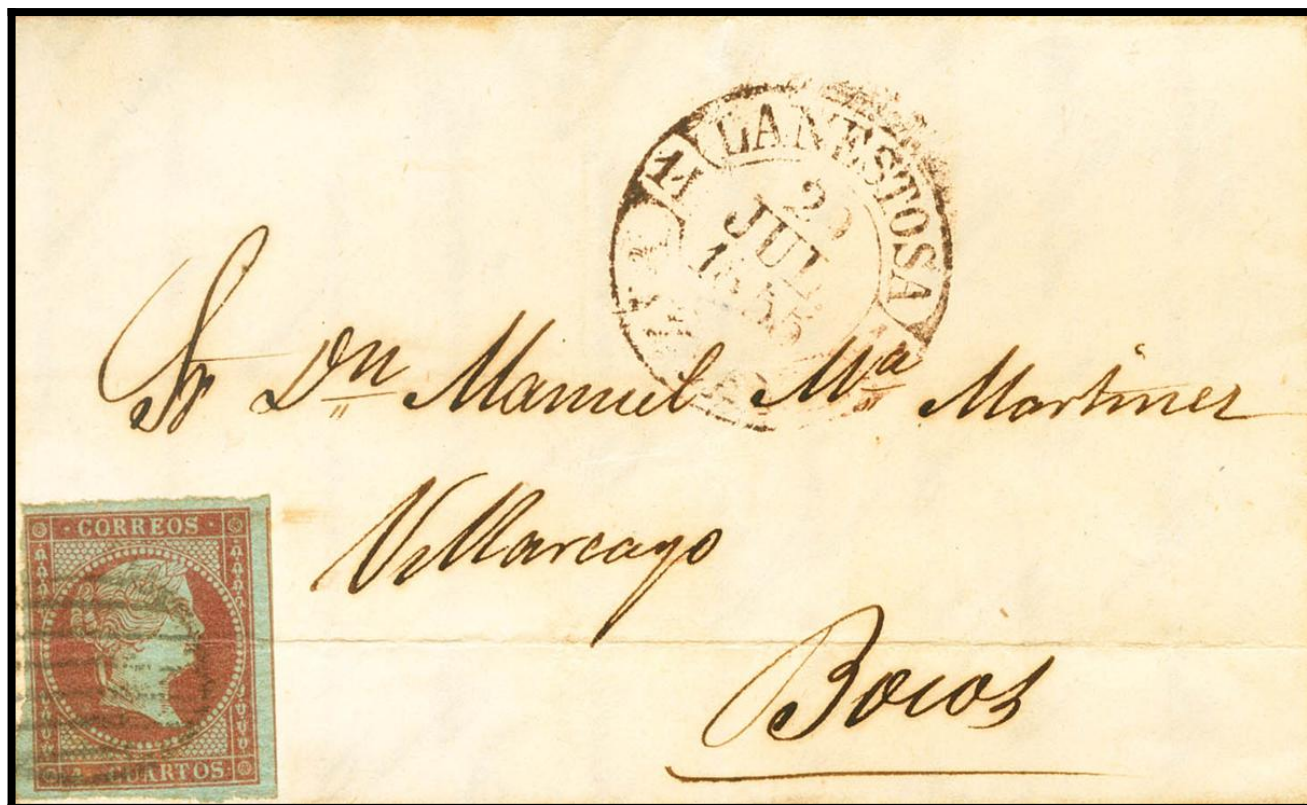 LANESTOSA
JUL
Sr Dn Manuel Ma Martinez
Villarcayo
Bocos
CORREOS